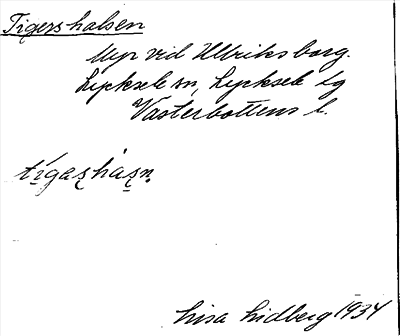 Tigershalsen
Myr vid Ullriksborg.
Lycksele sn, Lycksele lg
Västerbottens l.
tígas̨hás̨n̥
Lisa Lidberg 1934